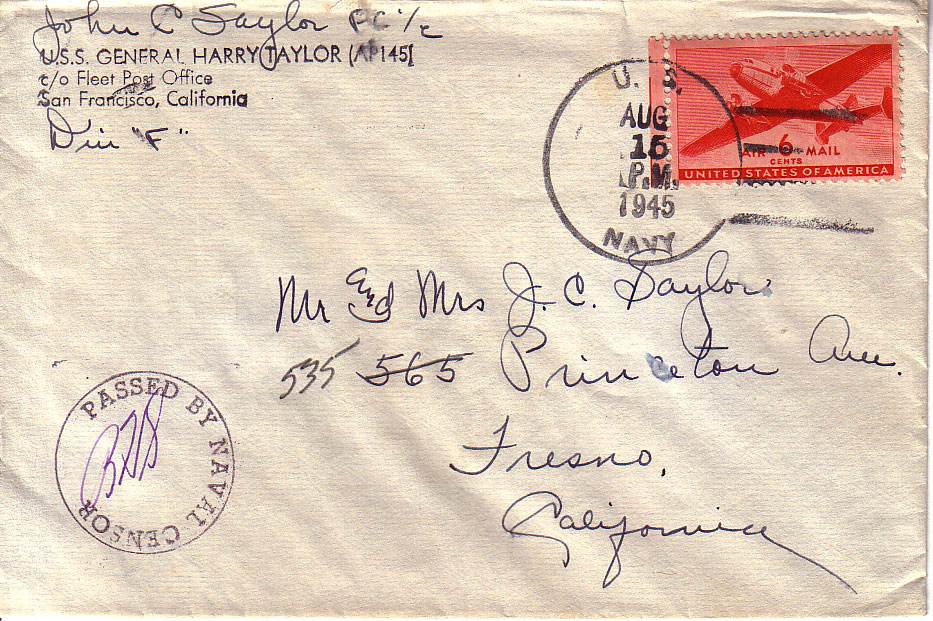 John C Saylor FC 1/c
U.S.S. GENERAL HARRY TAYLOR (AP145)
c/o Fleet Post Office
San Francisco, California
Div "F"
U. S.
AUG
15
P.M.
1945
NAVY
AIR 6 MAIL
CENTS
UNITED STATES OF AMERICA
Mr and Mrs J. C. Saylor
535 565 Princeton Ave.
Fresno,
California
PASSED BY NAVAL CENSOR